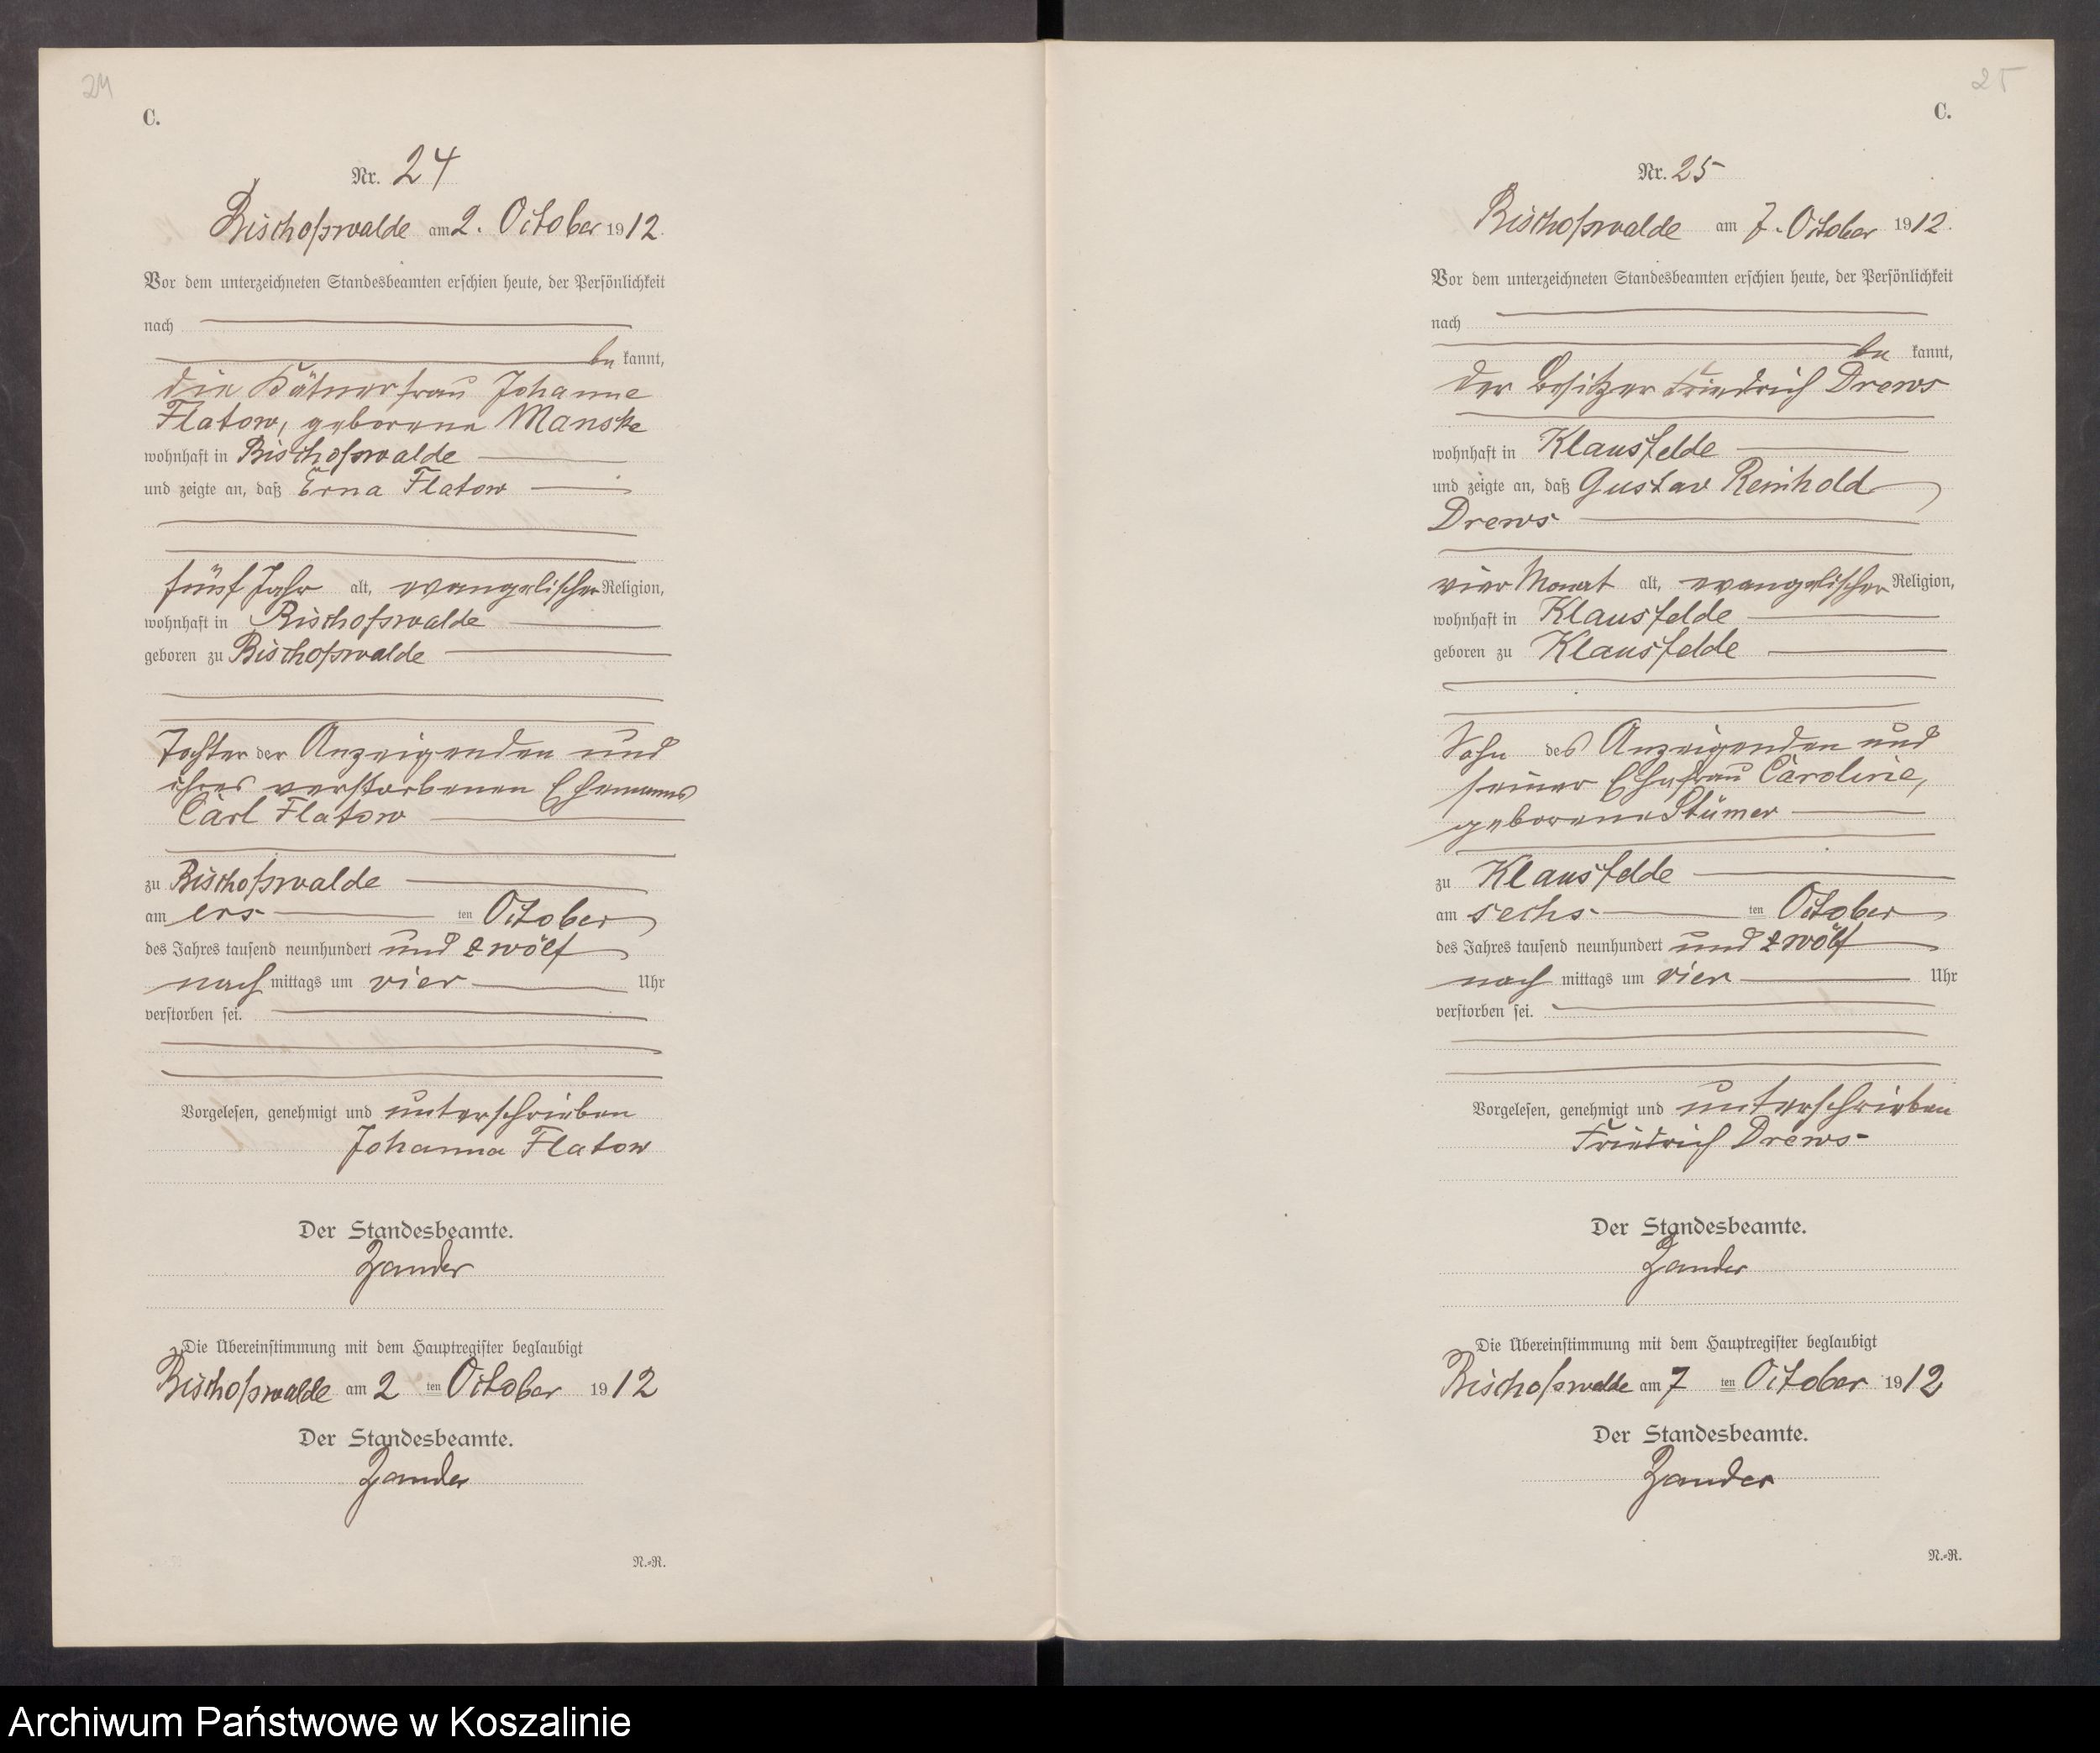 24
C.
Nr. 24
Bischofswalde am 2. October 1912.
Vor dem unterzeichneten Standesbeamten erschien heute, der Persönlichkeit
nach
be kannt,
die Kätnerfrau Johanne
Flatow, geborene Manske
wohnhaft in Bischofswalde
und zeigte an, daß Erna Flatow
fünf Jahr alt, evangelischer Religion,
wohnhaft in Bischofswalde
geboren zu Bischofswalde
Tochter der Anzeigenden und
ihres verstorbenen Ehemanns
Carl Flatow
zu Bischofswalde
am ers ten October
des Jahres tausend neunhundert und zwölf
nach mittags um vier Uhr
verstorben sei.
Vorgelesen, genehmigt und unterschrieben
Johanna Flatow
Der Standesbeamte.
Zander
Die Übereinstimmung mit dem Hauptregister beglaubigt
Bischofswalde am 2 ten October 1912
Der Standesbeamte.
Zander
N.-R.
25
C.
Nr. 25
Bischofswalde am 7. October 1912.
Vor dem unterzeichneten Standesbeamten erschien heute, der Persönlichkeit
nach
be kannt,
der Besitzer Friedrich Drews
wohnhaft in Klausfelde
und zeigte an, daß Gustav Reinhold
Drews
vier Monat alt, evangelischer Religion,
wohnhaft in Klausfelde
geboren zu Klausfelde
Sohn des Anzeigenden und
seiner Ehefrau Caroline,
geborene Stümer
zu Klausfelde
am sechs ten October
des Jahres tausend neunhundert und zwölf
nach mittags um vier Uhr
verstorben sei.
Vorgelesen, genehmigt und unterschrieben
Friedrich Drews
Der Standesbeamte.
Zander
Die Übereinstimmung mit dem Hauptregister beglaubigt
Bischofswalde am 7 ten October 1912
Der Standesbeamte.
Zander
N.-R.
Archiwum Państwowe w Koszalinie